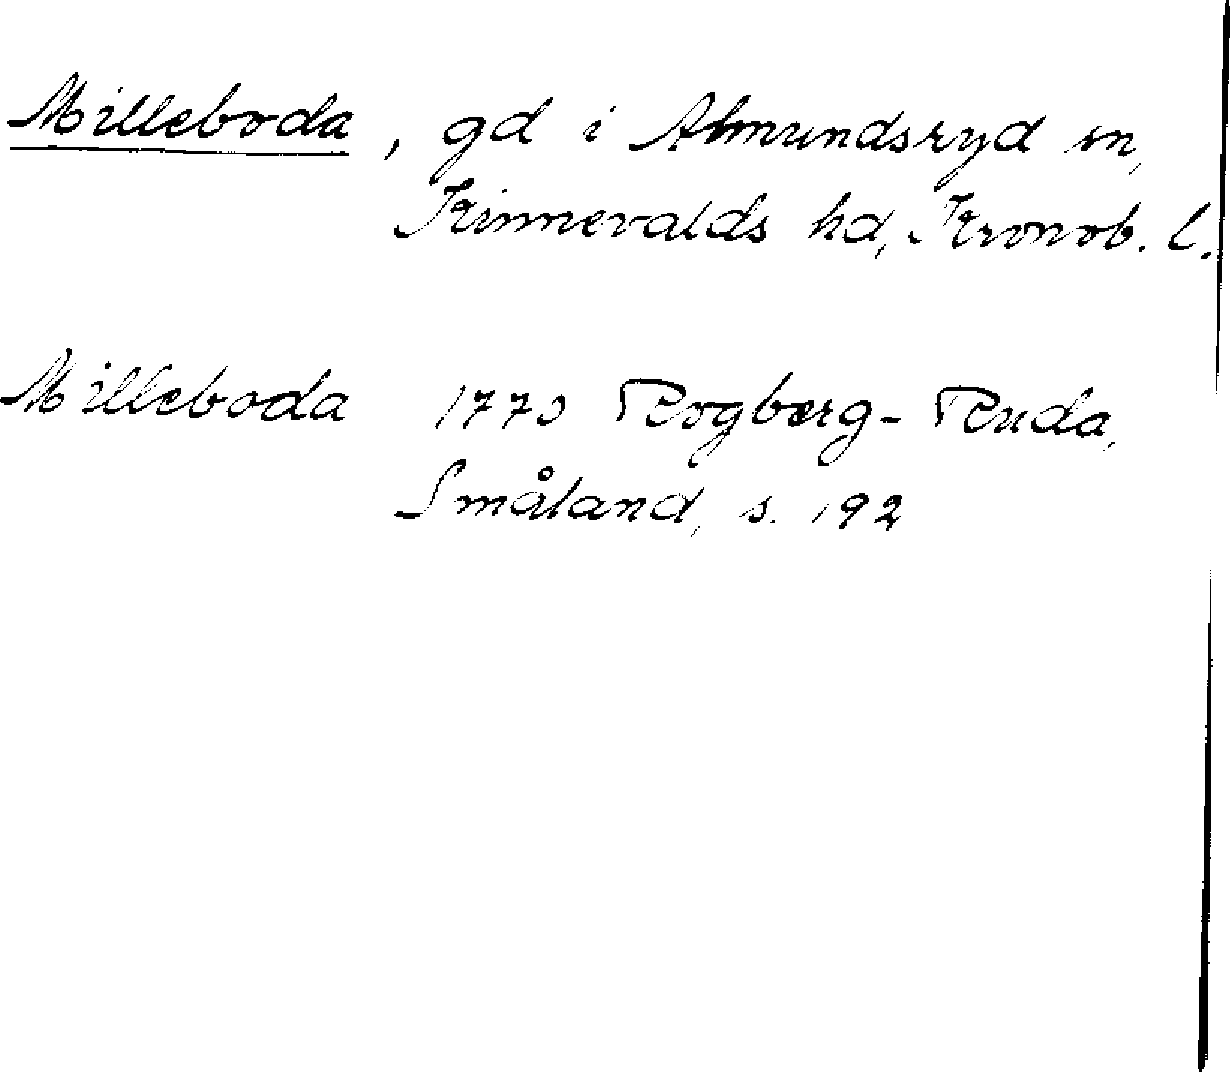 Milleboda, gd i Almundsryd sn,
Kinnevalds hd, Kronob. l.
Milleboda 1770 Rogberg-Ruda,
Småland, s. 192